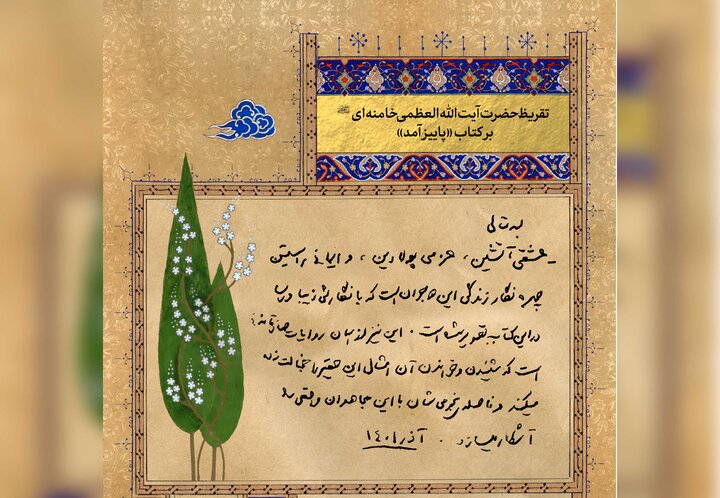 تقریظ حضرت آیت‌الله‌العظمی خامنه‌ای
بر کتاب ((پاییز آمد))
بسمه تعالی
ـ عشقی آتشین ، عزمی پولادین ، و ایمانی راستین
چهره نگار زندگی این دو جوان است که با نگارشی زیبا و رسا
در این کتاب تصویر شده است . این نیز از همان روایات صادقانه‌ای
است که شنیدن و خواندن آن امثال این حقیر را خجالت زده
میکند و فاصله‌ی نجومی‌شان با این مجاهدان واقعی را
آشکار میسازد . آذر ۱۴۰۱